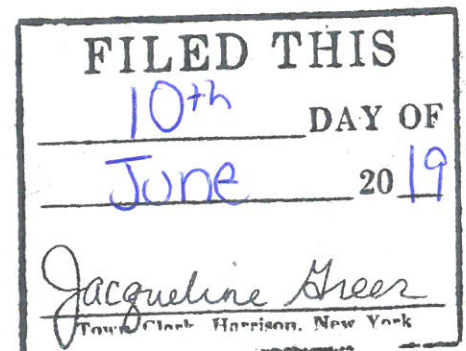 FILED THIS
10th DAY OF
June 2019
Jacqueline Greer
Town Clerk Harrison, New York